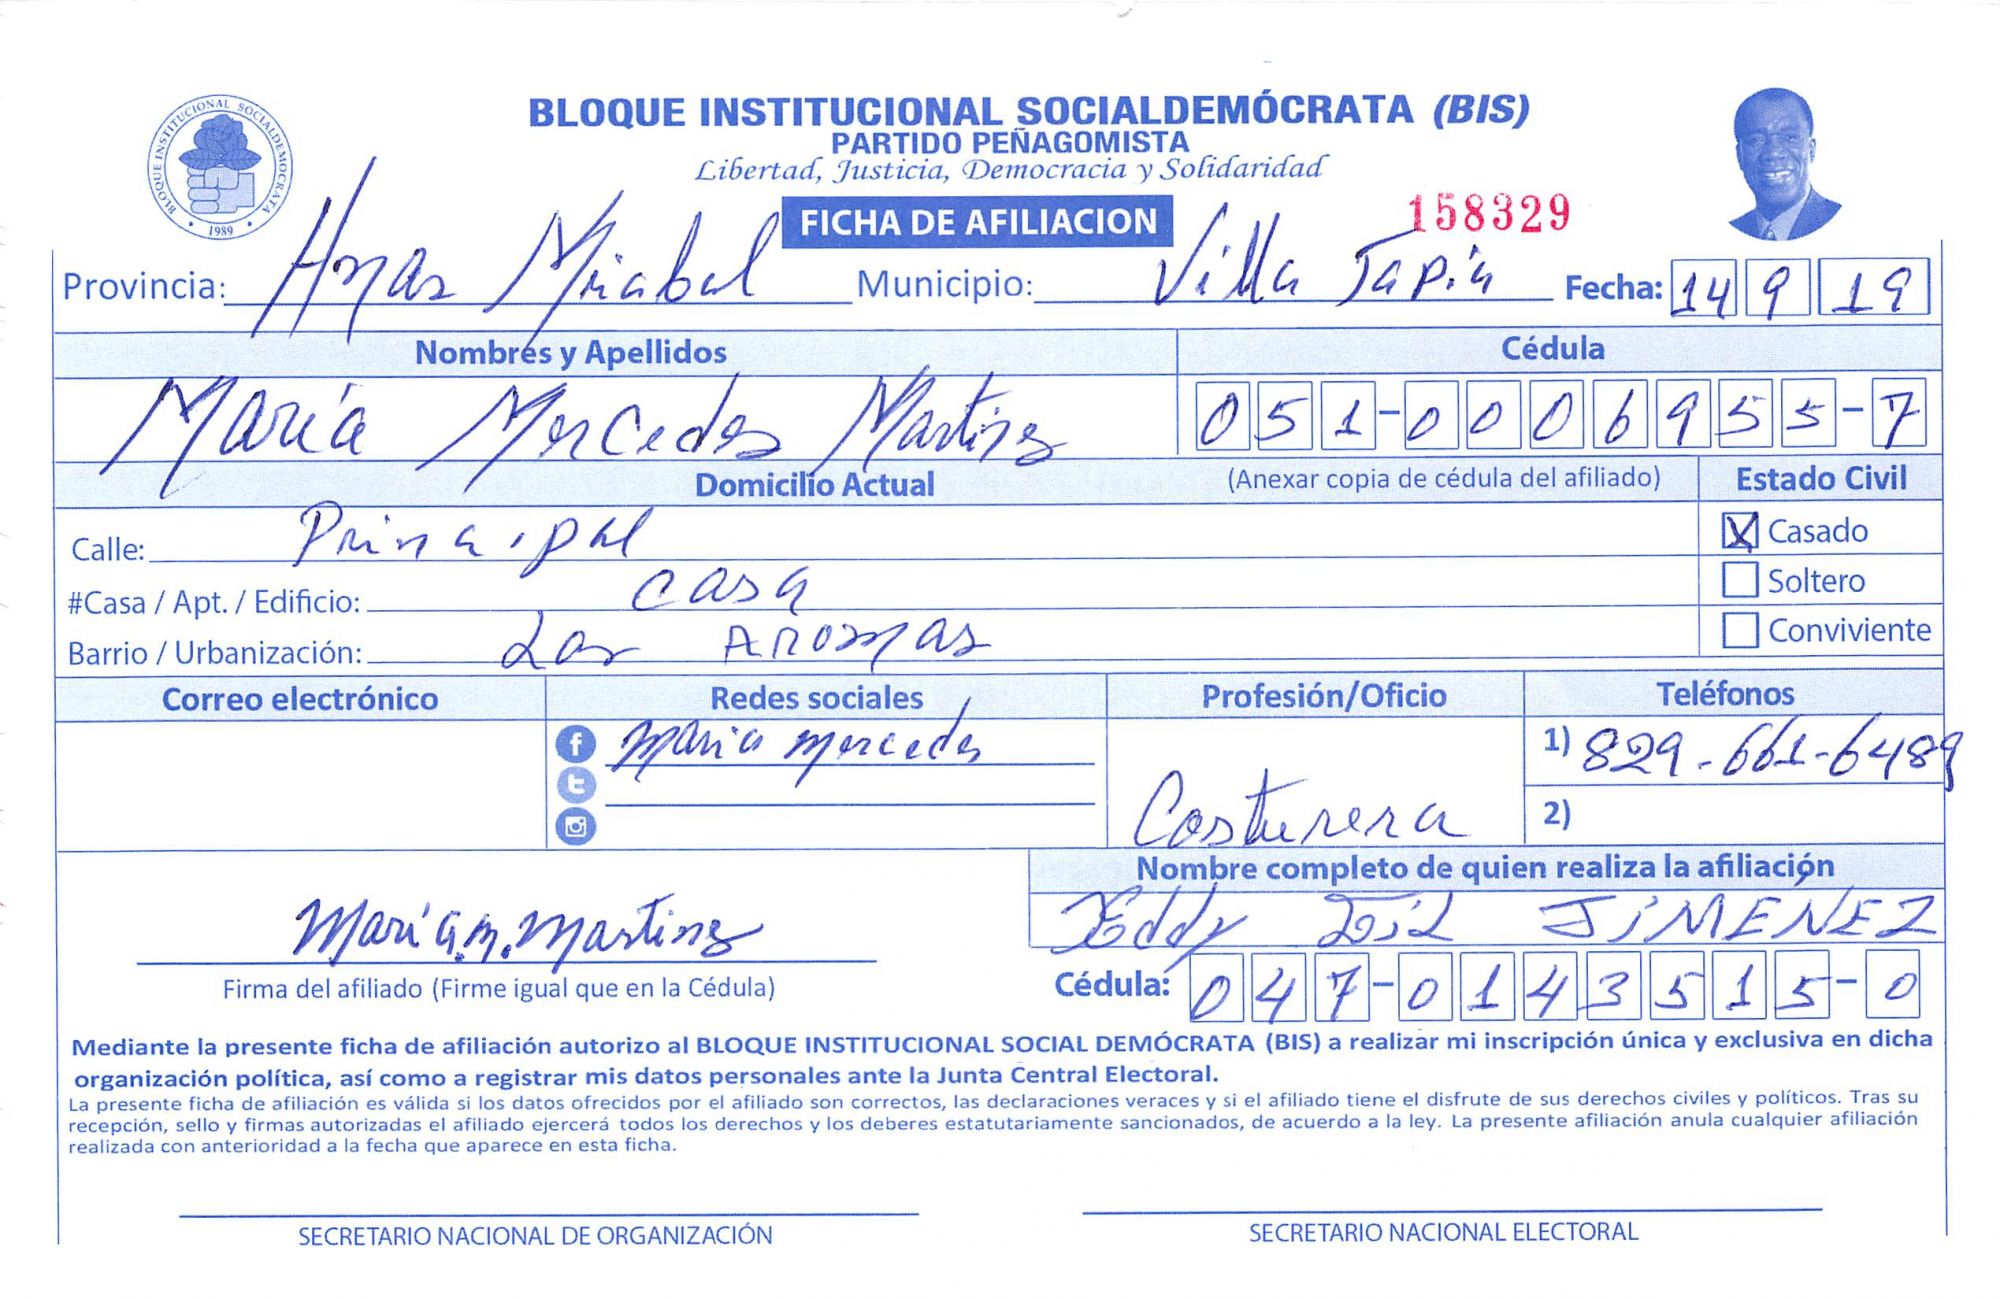 BLOQUE INSTITUCIONAL SOCIALDEMOCRATA
1989
BLOQUE INSTITUCIONAL SOCIALDEMÓCRATA (BIS)
PARTIDO PEÑAGOMISTA
Libertad, Justicia, Democracia y Solidaridad
FICHA DE AFILIACION
158329
Provincia: Hnas Mirabal Municipio: Villa Tapia Fecha: 14 9 19
Nombres y Apellidos Cédula
María Mercedes Martines 051-0006955-7
Domicilio Actual (Anexar copia de cédula del afiliado) Estado Civil
Calle: Principal X Casado
#Casa / Apt. / Edificio: casa Soltero
Barrio / Urbanización: Las Aromas Conviviente
Correo electrónico Redes sociales Profesión/Oficio Teléfonos
f Maria Mercedes Costurera 1) 829-661-6489
2)
Nombre completo de quien realiza la afiliación
María M. Martines Eddy Gil JIMENEZ
Firma del afiliado (Firme igual que en la Cédula) Cédula: 047-0143515-0
Mediante la presente ficha de afiliación autorizo al BLOQUE INSTITUCIONAL SOCIAL DEMÓCRATA (BIS) a realizar mi inscripción única y exclusiva en dicha
organización política, así como a registrar mis datos personales ante la Junta Central Electoral.
La presente ficha de afiliación es válida si los datos ofrecidos por el afiliado son correctos, las declaraciones veraces y si el afiliado tiene el disfrute de sus derechos civiles y políticos. Tras su
recepción, sello y firmas autorizadas el afiliado ejercerá todos los derechos y los deberes estatutariamente sancionados, de acuerdo a la ley. La presente afiliación anula cualquier afiliación
realizada con anterioridad a la fecha que aparece en esta ficha.
SECRETARIO NACIONAL DE ORGANIZACIÓN SECRETARIO NACIONAL ELECTORAL